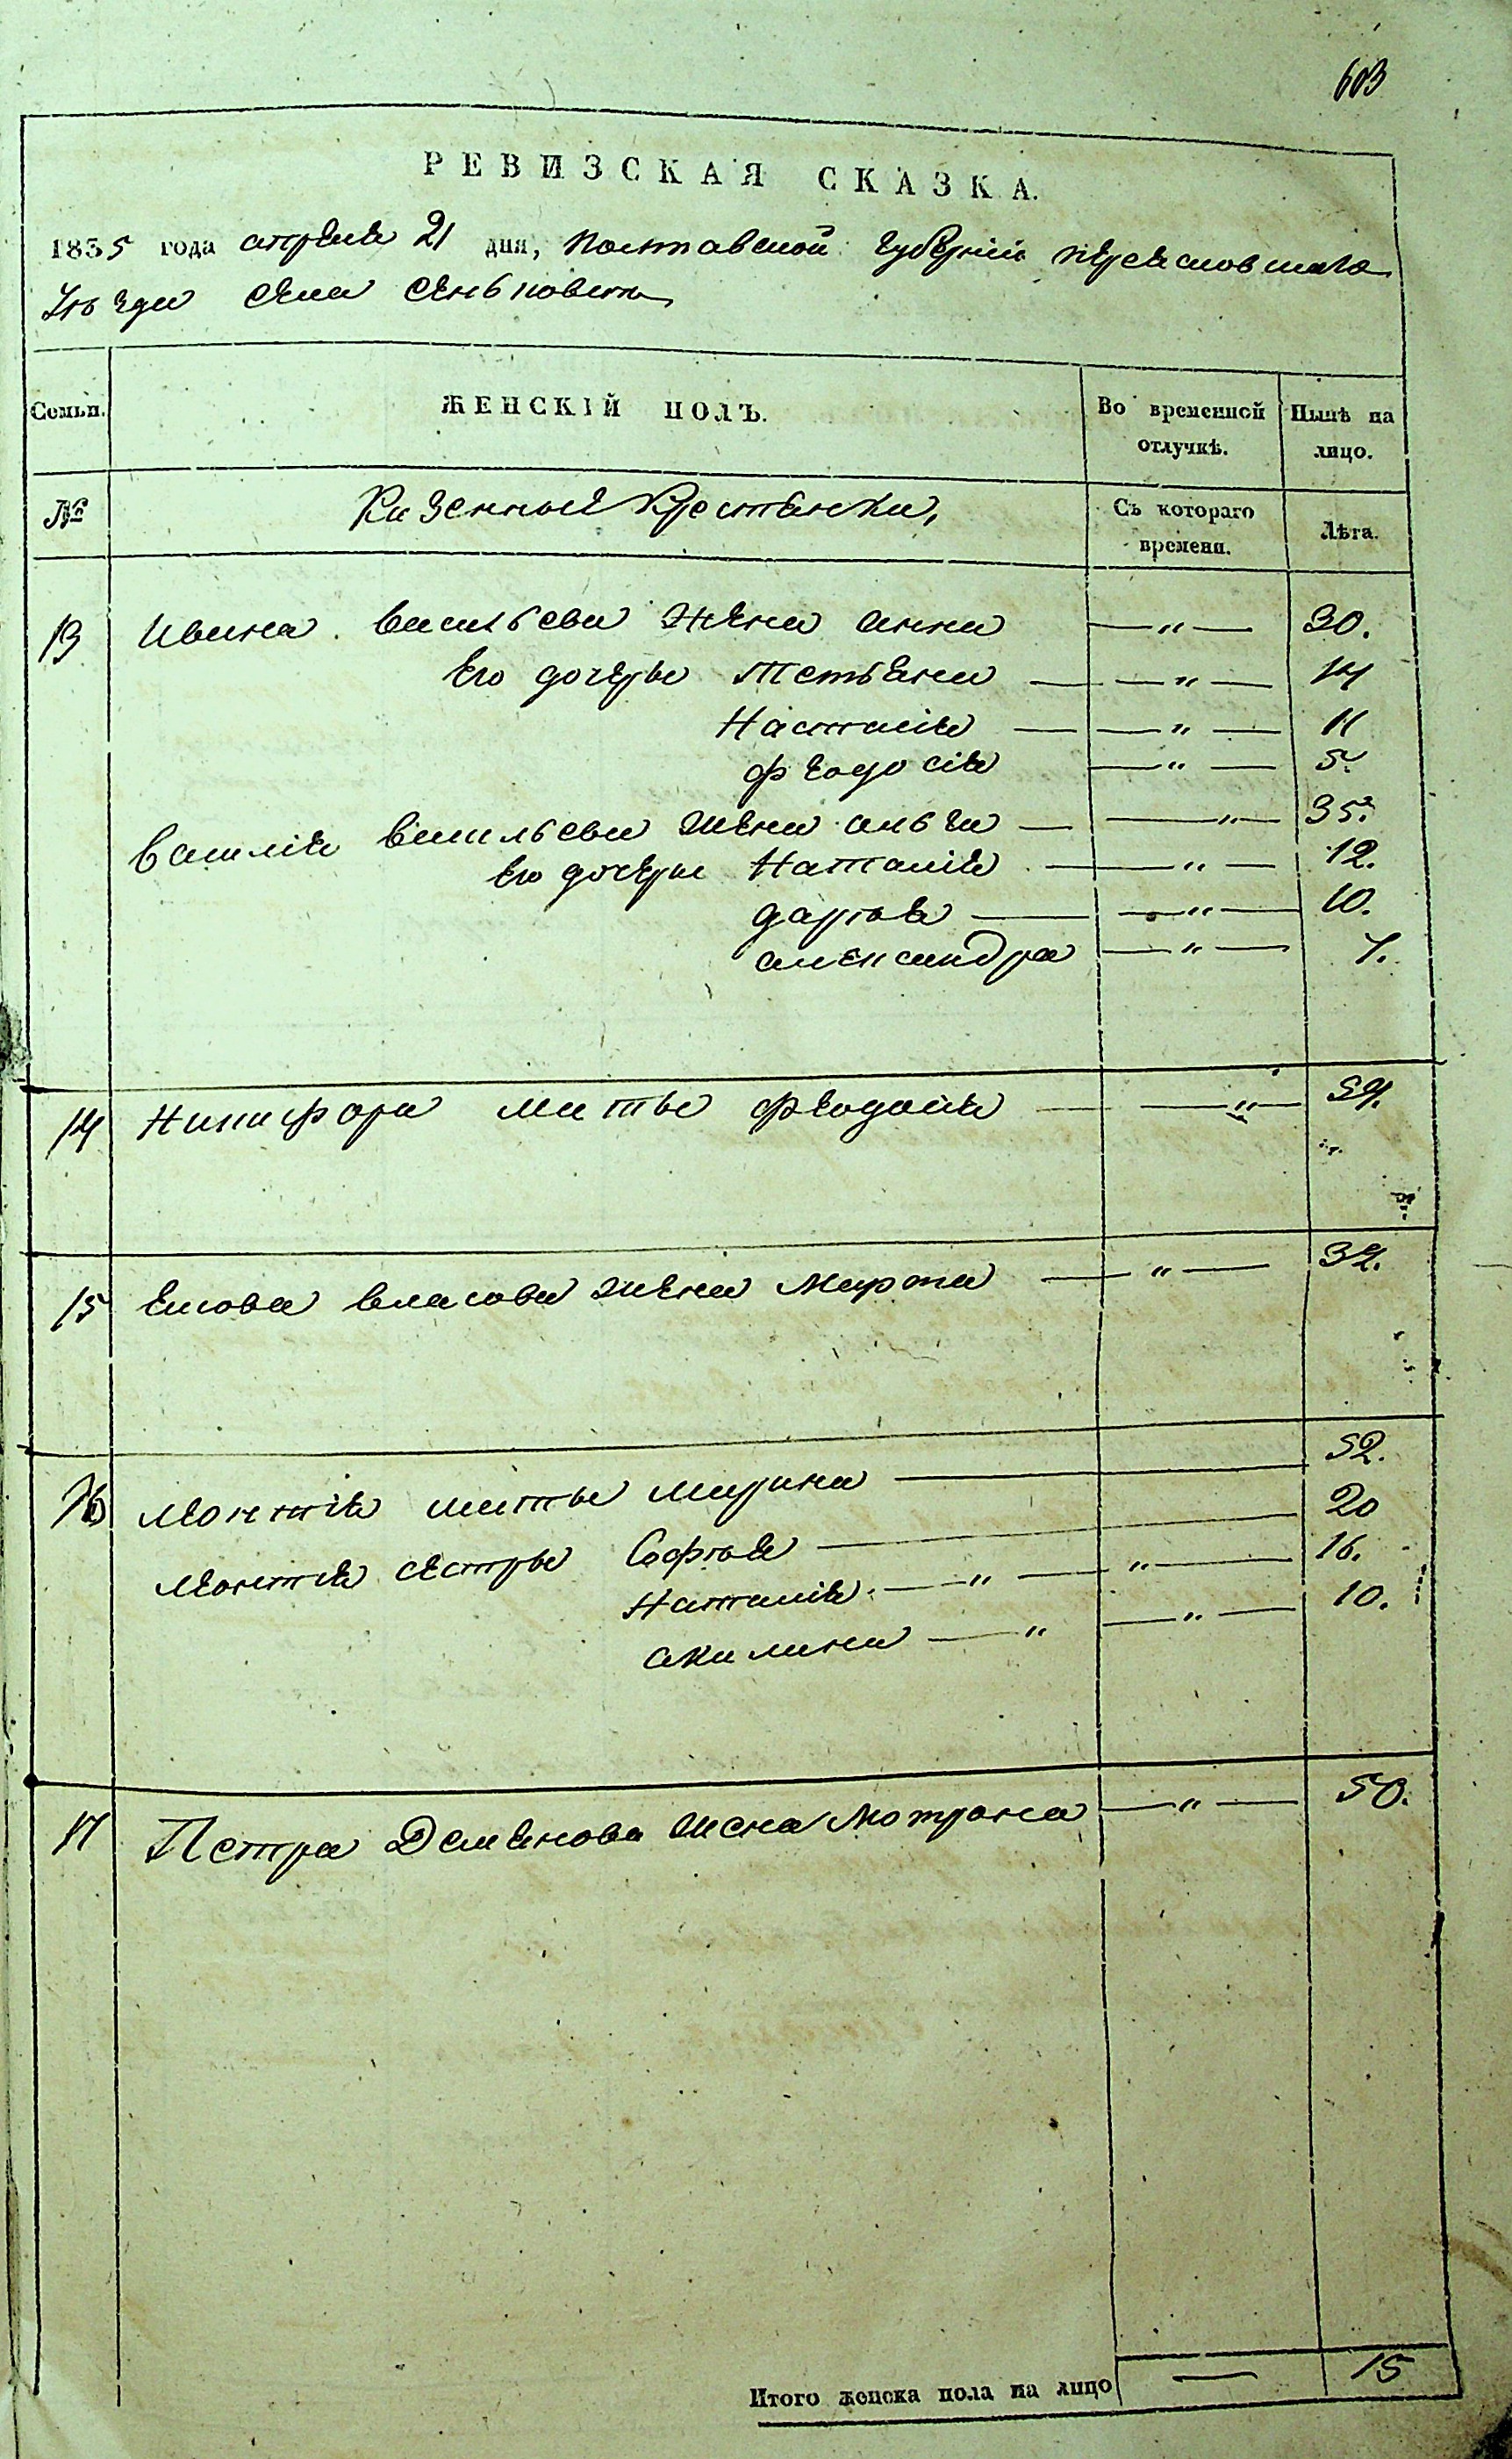 603
РЕВИЗСКАЯ СКАЗКА.
1835 года апреля 21 дня, Полтавской губерніи переяславскаго
Уезда села Сеньковецъ
Семьи. ЖЕНСКІЙ ПОЛЪ. Во временной отлучкѣ. Нынѣ на лицо.
№ Казенные Крестьянки, Съ котораго времени. Лѣта.
13 Ивана Васильева жена анна — " — 30.
Его дочеры Тетьяна — " — 14
Наталія — " — 11
феодосія — " — 5.
василія васильева жена ольга — " — 35.
Его дочеры Наталія — " — 12.
дарья — " — 10.
александра — " — 7.
14 Никифора мать феодосія — " — 54.
15 власова жена Марфа — " — 32.
16 Леонтія мать марина — 52.
Леонтія сестры Софья — 20
Наталія — " — " — 16.
акилина — " — " — 10.
17 Петра Деменова жена Мотрона — " — 50.
Итого женска пола на лицо — 15